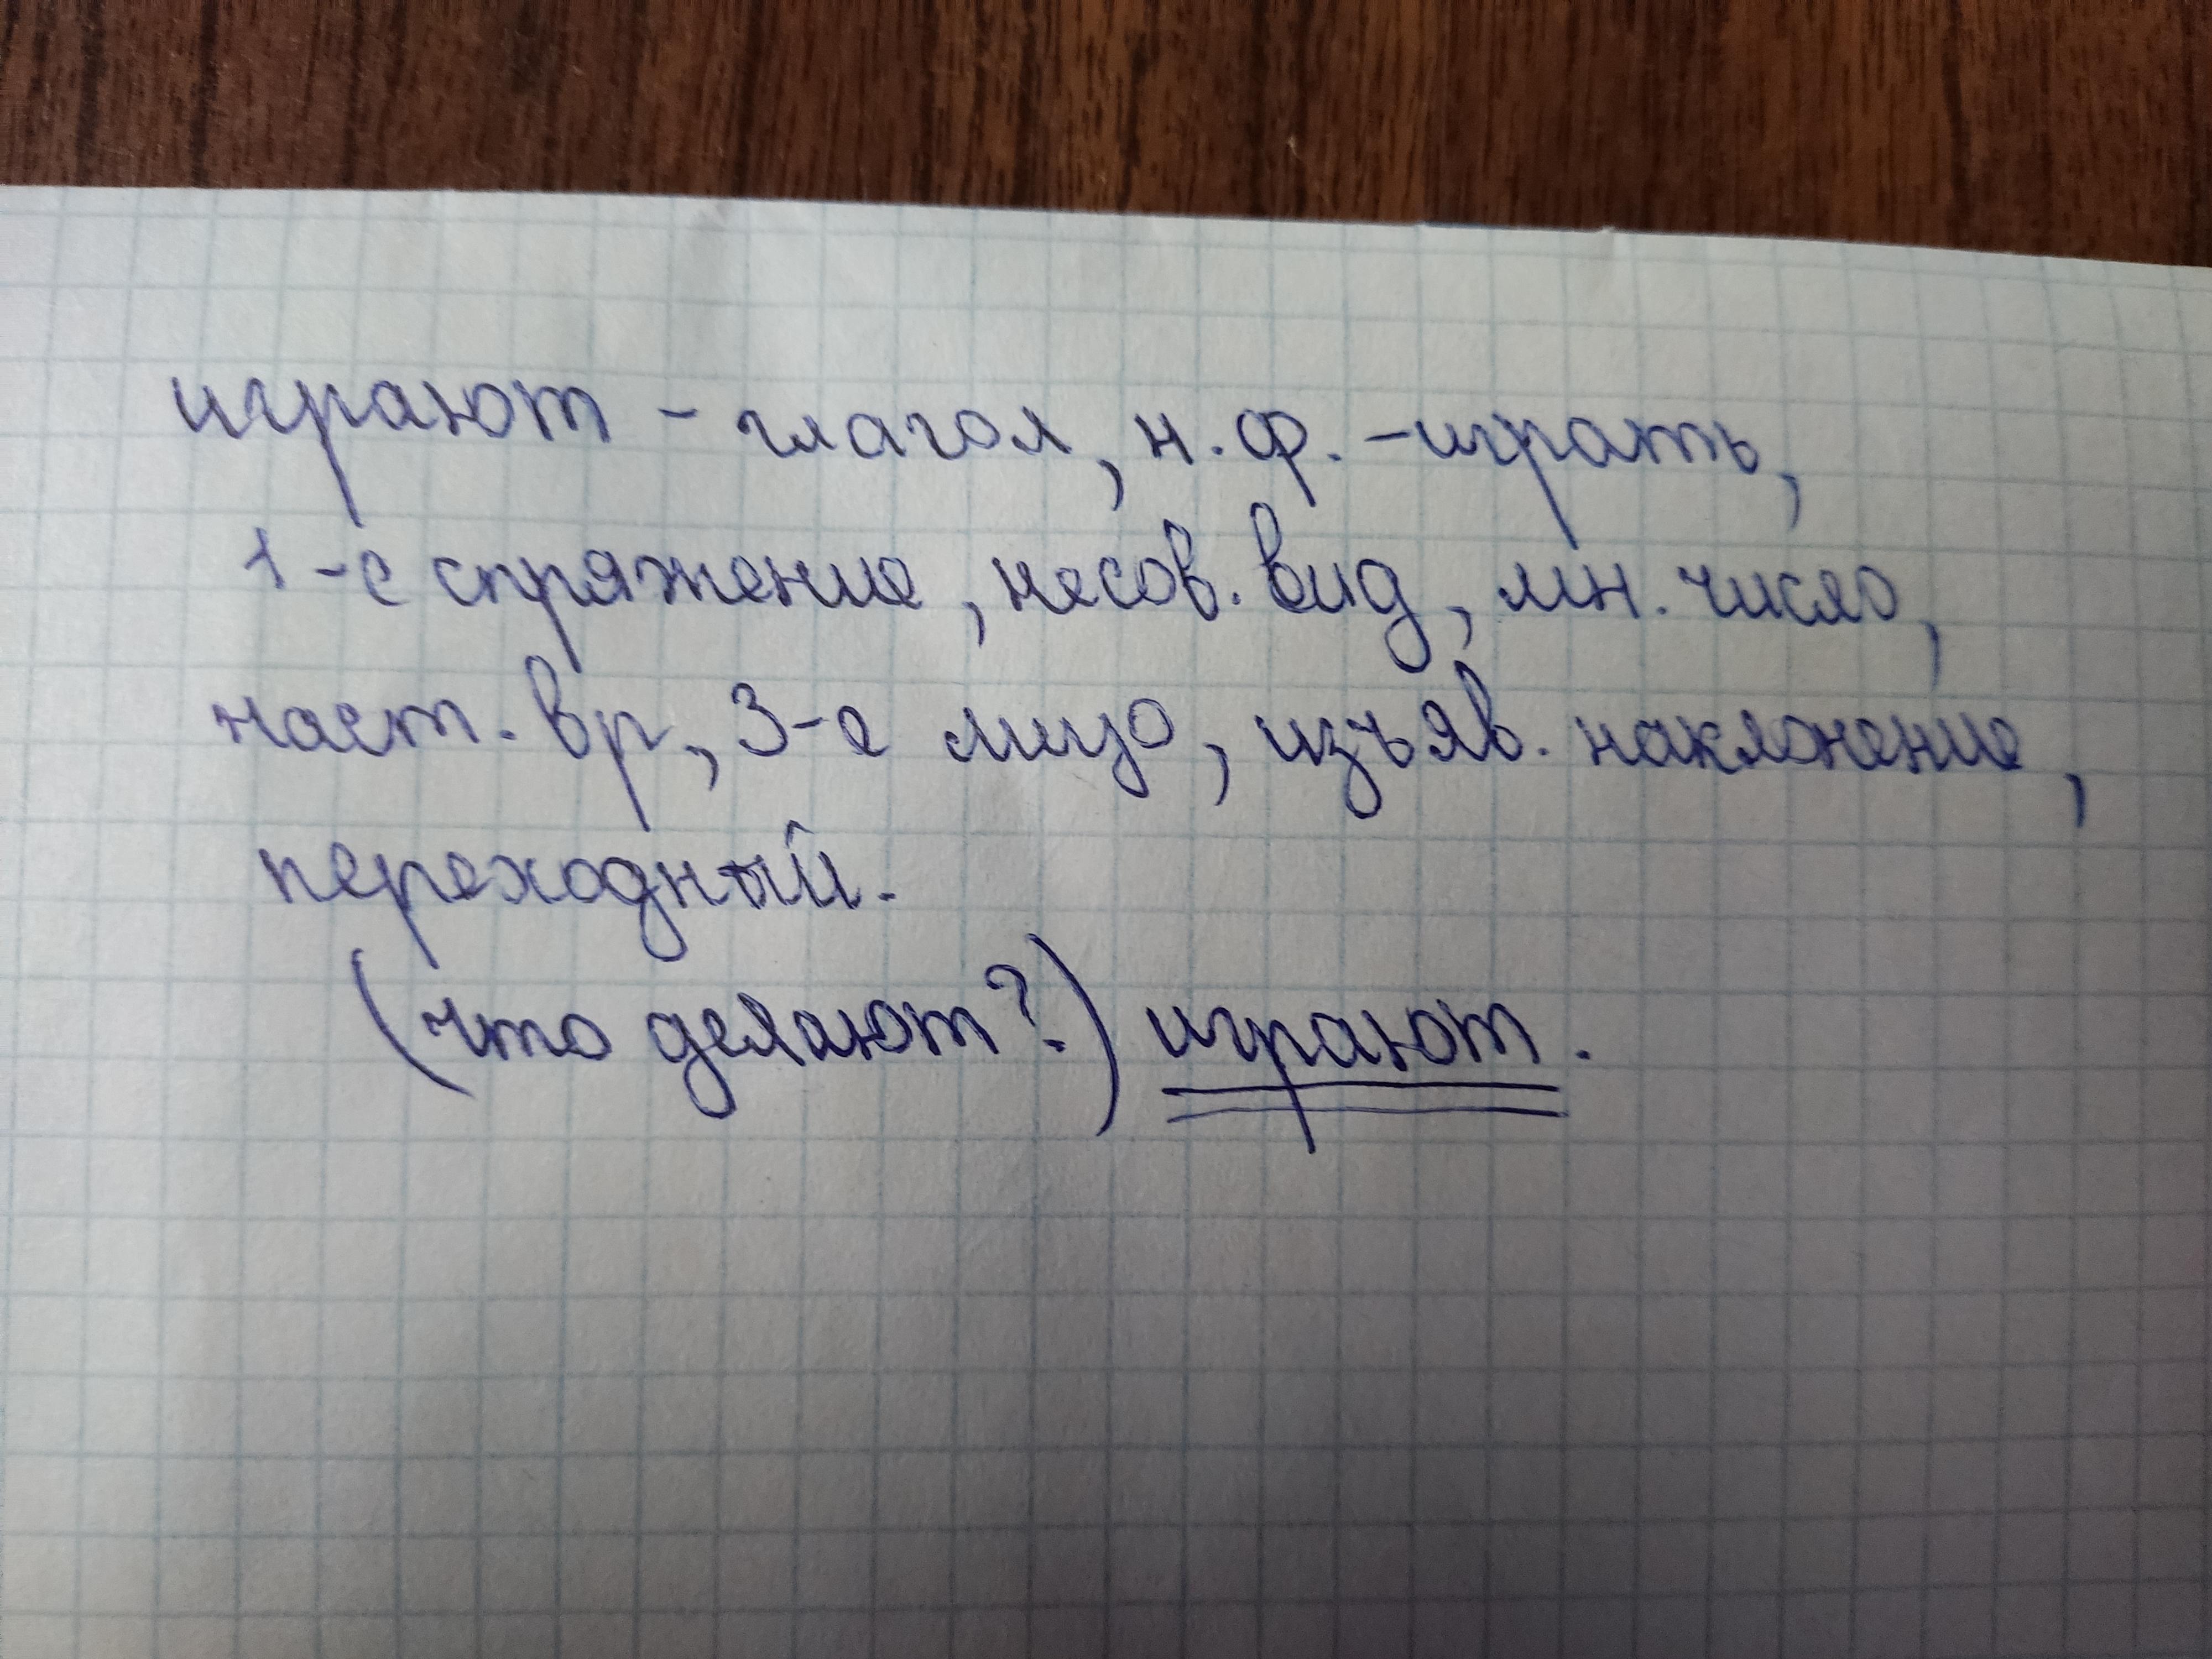 играют - глагол, н.ф. - играть,
1-е спряжение, несов. вид, мн. число,
наст. вр, 3-е лицо, изъяв. наклонение,
переходный.
(что делают?) играют.